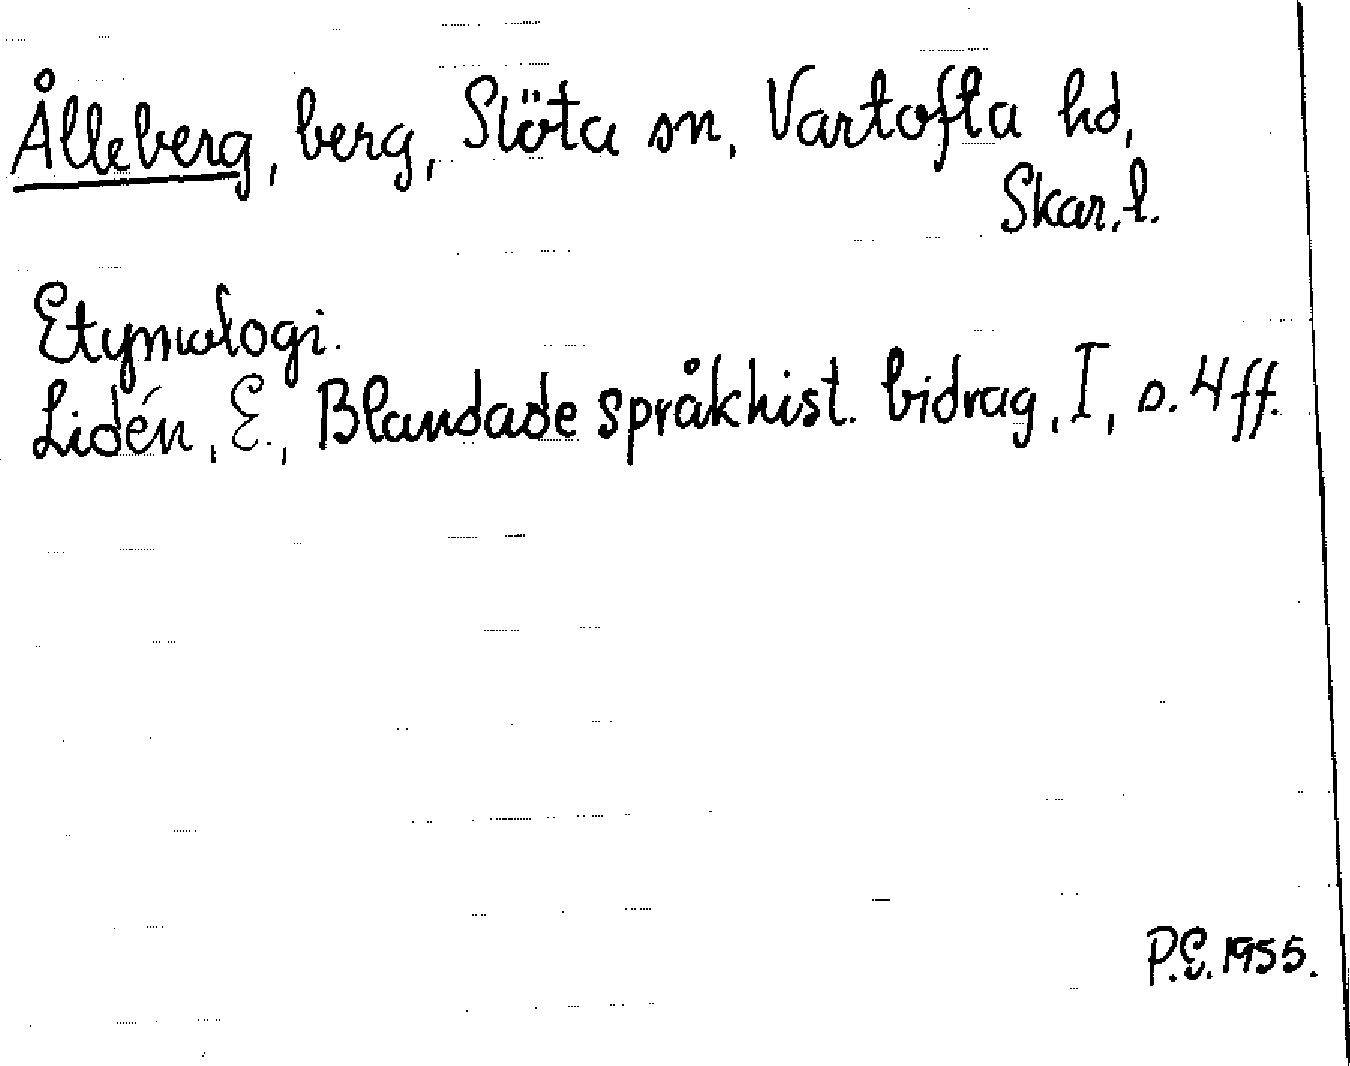 Ålleberg, berg, Slöta sn, Vartofta hd,
Skar. l.
Etymologi.
Lidén, E., Blandade språkhist. bidrag, I, s. 4 ff.
P.E. 1955.